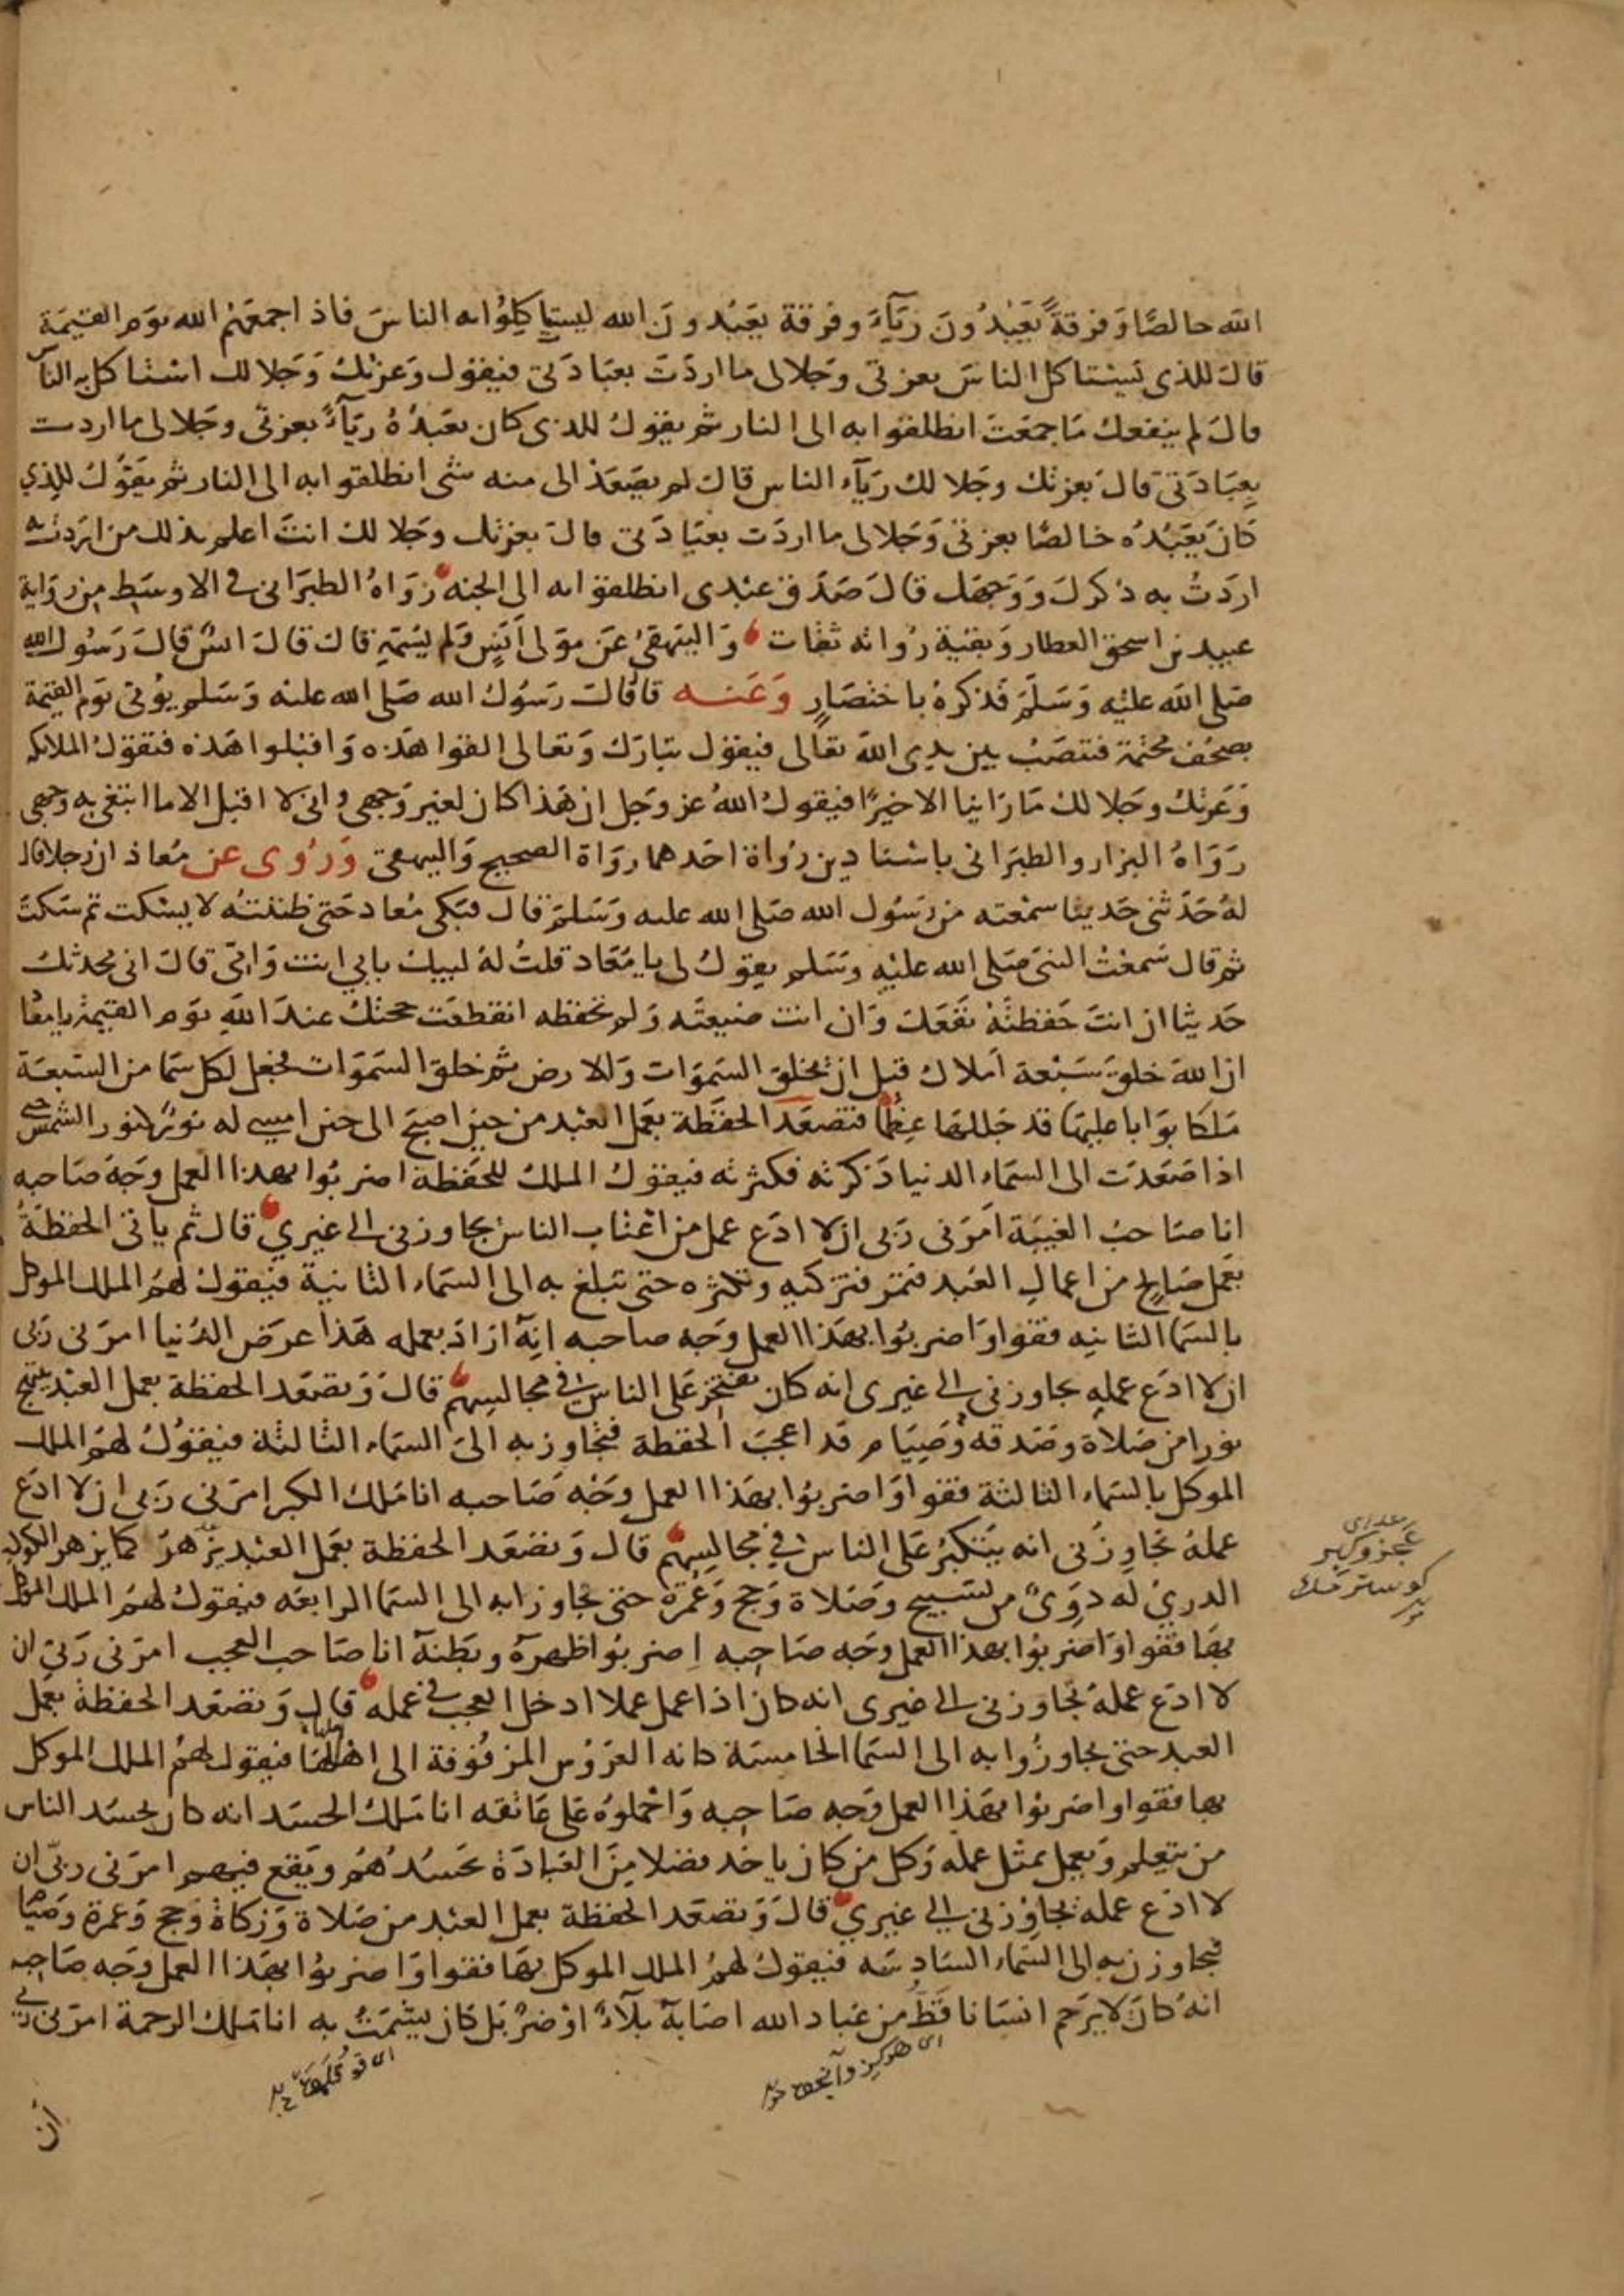 الله خالصًا وَفرقةً يَعَبْدُونَ رِيَآءً وفرقة يعَبُدونَ الله ليستاكِلوُا به الناسَ فاذا جمعَهُم الله يوَم القيمَة
قالَ للذى يَستاكل الناسَ بعزتى وجَلالى ما اردَت بعبَادَتى فيقول وَعزتكَ وَجَلالك استاكل به الناس
قالَ لم ينفعك مَاجمعَتَ انطلقوا به الى النار ثم يقولُ للذى كان يعَبدُهُ ريَآءً بعزتى وجَلالى ما اردت
بِعبَادَتى قالَ بعزتك وجَلالك رِيَآء الناس قالَ لم يصَعَد الى منه شى انطلقوا به الى النار ثم يقَوُلُ للذي
كانَ يَعَبُدُه خالصًا بعزتى وَجَلالى ما اردَت بعبَادَتى قالَ بعزتك وجَلالك انتَ اعلم بذلك من اردت به
اردَتُ به ذكركَ وَوَجهَك قالَ صَدَق عبْدى انطلقوا به الى الجنه رَوَاهُ الطبرَانى فى الاوسَط مِن رِوَاية
عبيد بن اسحق العطار وَبقية رُواته ثقات وَالبيَهقىُ عَن موَلى اَنَسٍ وَلم يسَمهِ قالَ قالَ انسٌ قالَ رَسُول الله
صَلى الله عليْه وَسَلَّمَ فَذكرهُ باختصَارٍ وَعَنــه قالَ قالَ رَسُول الله صَلى الله عليْه وَسَلم يؤتى يَوم القيمَة
بصحُف مختمة فتنصَبُ بين يدِى الله تقالى فيقول تبارَك وَتعالى القوا هَذه وَاقبلوا هَذه فتقوَلُ الملائكه
وَعَزتكَ وجَلالكَ مَا رَاينا الا خيرًا فيقولُ اللهُ عز وجَل ان هَذا كان لغير وَجهى وانى لا اقبل الا ما ابتغى به وجهى
رَوَاهُ البزار والطبرَانى باسْنادين رُواة احَدهما رِوَاة الصحيح وَالبيهقى وَرُوى عن مُعاذ ان رجلا قال
لهُ حَدَثنى حَديثا سمعْته من رَسُول الله صَلى الله عليه وَسَلمَ قال فبَكى مُعاد حَتى ظننتُه لا يسْكت ثم سَكتَ
ثم قال سَمعْتُ النبى صَلى الله عليْهِ وسَلم يقولُ لى يا مُعَاد قلتُ لهُ لبيكَ بابي انت وَامى قالَ انى محدثكَ
حَديثا ان انتَ حَفظتَهُ نفعَكَ وَان انت ضيعتَه وَلم تحفظه انقطعَت حجتكَ عندَ اللهِ يوَم القيمة يامُعا
ان اللهَ خلقَ سَبْعة اَملاك قبل ان يخلقَ السَمَوَات وَالارض ثم خلقَ السَمَوات فجعَل لكل سَما من السَبعَة
مَلكا بوَابا عليهَا قد جَللها عِظما فتصعَد الحفَظة بعَمل العبْد من حين اصبحَ الى حين امسى له نورٌ كنور الشمسْ حتى
اذا صَعَدَت الى السَمَاء الدنيا ذَكرته فكثرته فيقولُ الملكُ للحَفظة اضربُوا بهذا العمل وَجَهَ صَاحبه
انا صَاحبُ الغيبَة اَمرَنى رَبى ان لا ادَع عمل من اغتاب الناسَ يجاوزنى الى غيري قال ثم ياتى الحفظَةُ
بعَمل صَالِح من اعمالِ العَبد فتمر فتزكيه وتكثره حتى تبلغ به الى السَماء الثانية فيقولُ لهُم الملك الموكل
بالسَما الثانيه فقفوا وَاضربُوا بهَذا العمل وَجَه صاحبه انهُ ارَادَ بعمله هَذا عرَض الدُنيا امرَنى رَبى
ان لا ادَع عملهِ يجاوزنى الى غيرى انه كان يفتخر عَلى الناسِ فى مجالسِهمْ قالَ وَتصَعَد الحفظة بعمل العَبْد يبتهج
نورا من صَلاة وصَدقه وَصِيَام قد اعجبَ الحفظة فتجاوز به الى السَمَاء الثالثة فيقوُلُ لهمُ الملك
الموكل بالسَماء الثالثة فقفوا وَاضربُوا بهَذا العمل وَجَه صَاحبه انا مَلك الكبر امرَنى رَبى ان لا ادَع
عملهُ يجَاوِزُنى انه يَتكبُر عَلى الناسِ في مجالِسِهم قال وَتضعَد الحفظة بعَمل العبْد يزهرَ كما يزهر الكوكب
الدرىُ له دوِىٌ من تسَبيح وصَلاة وَحج وَعُمرَة حتى تجاوز به الى السَما الرابعَه فيقولُ لهُم الملك الموكل
بهَا فقفوا وَاضربوا بهذا العمل وجَه صَاحِبه اِضربوُا ظهرهُ وبَطنهُ انا صَاحب العجب امرَنى رَبى ان
لا ادَع عملهُ تجاوزنى الى غيرى انه كان اذا عمل عملا ادخل العجب فى عمله قال وَتصَعَد الحفظةُ بعَمل
العبد حتى تجاوزُوا به الى السَما الخامسَة كانه العَرُوس المزفوُفة الى اهلهَا فيقول لهمُ الملك الموكل
بها فقفوا واضربُوا بهَذا العمل وَجه صَاحِبه وَاحْملوُهُ عَلى عَاتقه انا مَلكُ الحسَد انه كان يحسَد الناس
من يتعِلم وَيعمل بمثل عمله وَكل من كان ياخد فضلا مِنَ العبَادَة يَحسُدُهُم ويَقع فيهم امرَنى ربّى ان
لا ادَع عمله يجاوِزنى الى غيري قالَ وَتصَعَد الحفظة بعمل العبْد من صَلاة وَزكاة وَحج وَعمرة وصَيام
فيجاوزن به الى السَماء السَادِسَه فيقولُ لهمُ الملك الموكل بهَا فقفوا وَاضربوُا بهَذا العمل وَجَه صَاحبه
انهُ كانَ لا يرَحم انسَانا قَطُ من عبَاد الله اصَابهُ بلآءٌ اوْ ضرٌ بَل كان يشمَتُ به انا مَلك الرحمة امرَنى ربى
ان